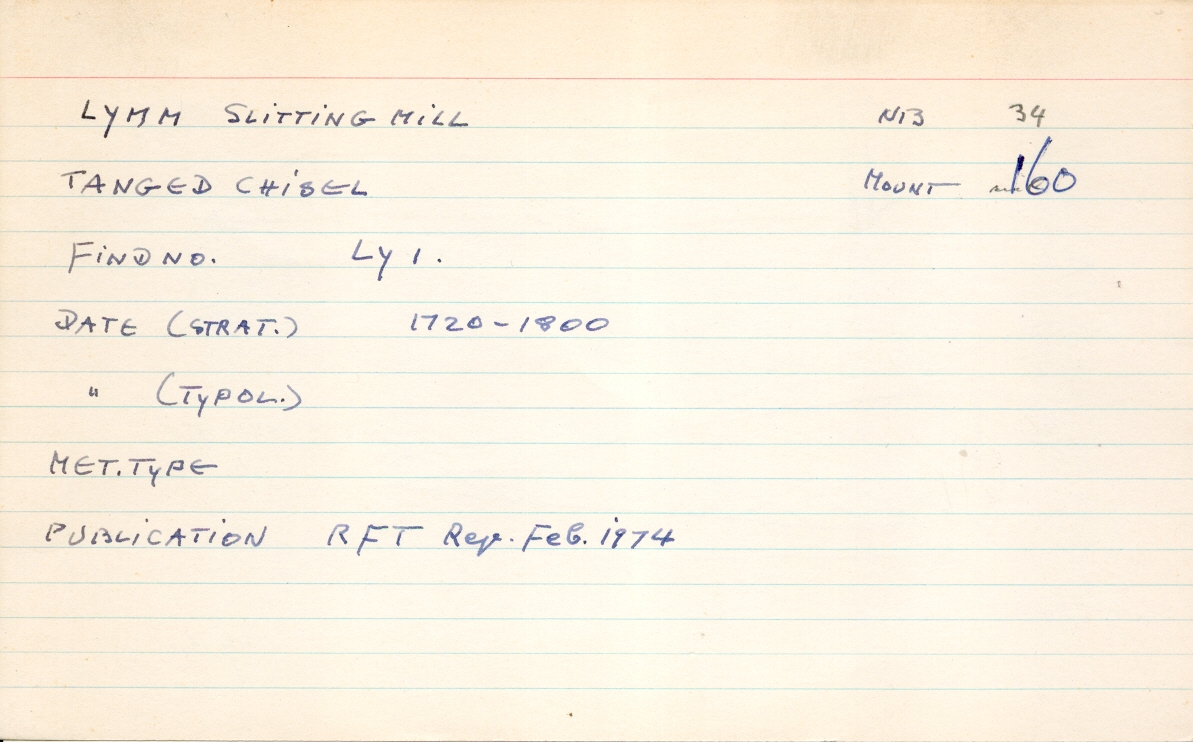 LYMM SLITTING MILL NB 34
TANGED CHISEL MOUNT 160
FIND NO. Ly 1.
DATE (STRAT.) 1720-1800
" (TYPOL.)
MET. TYPE
PUBLICATION RFT Rep. Feb. 1974